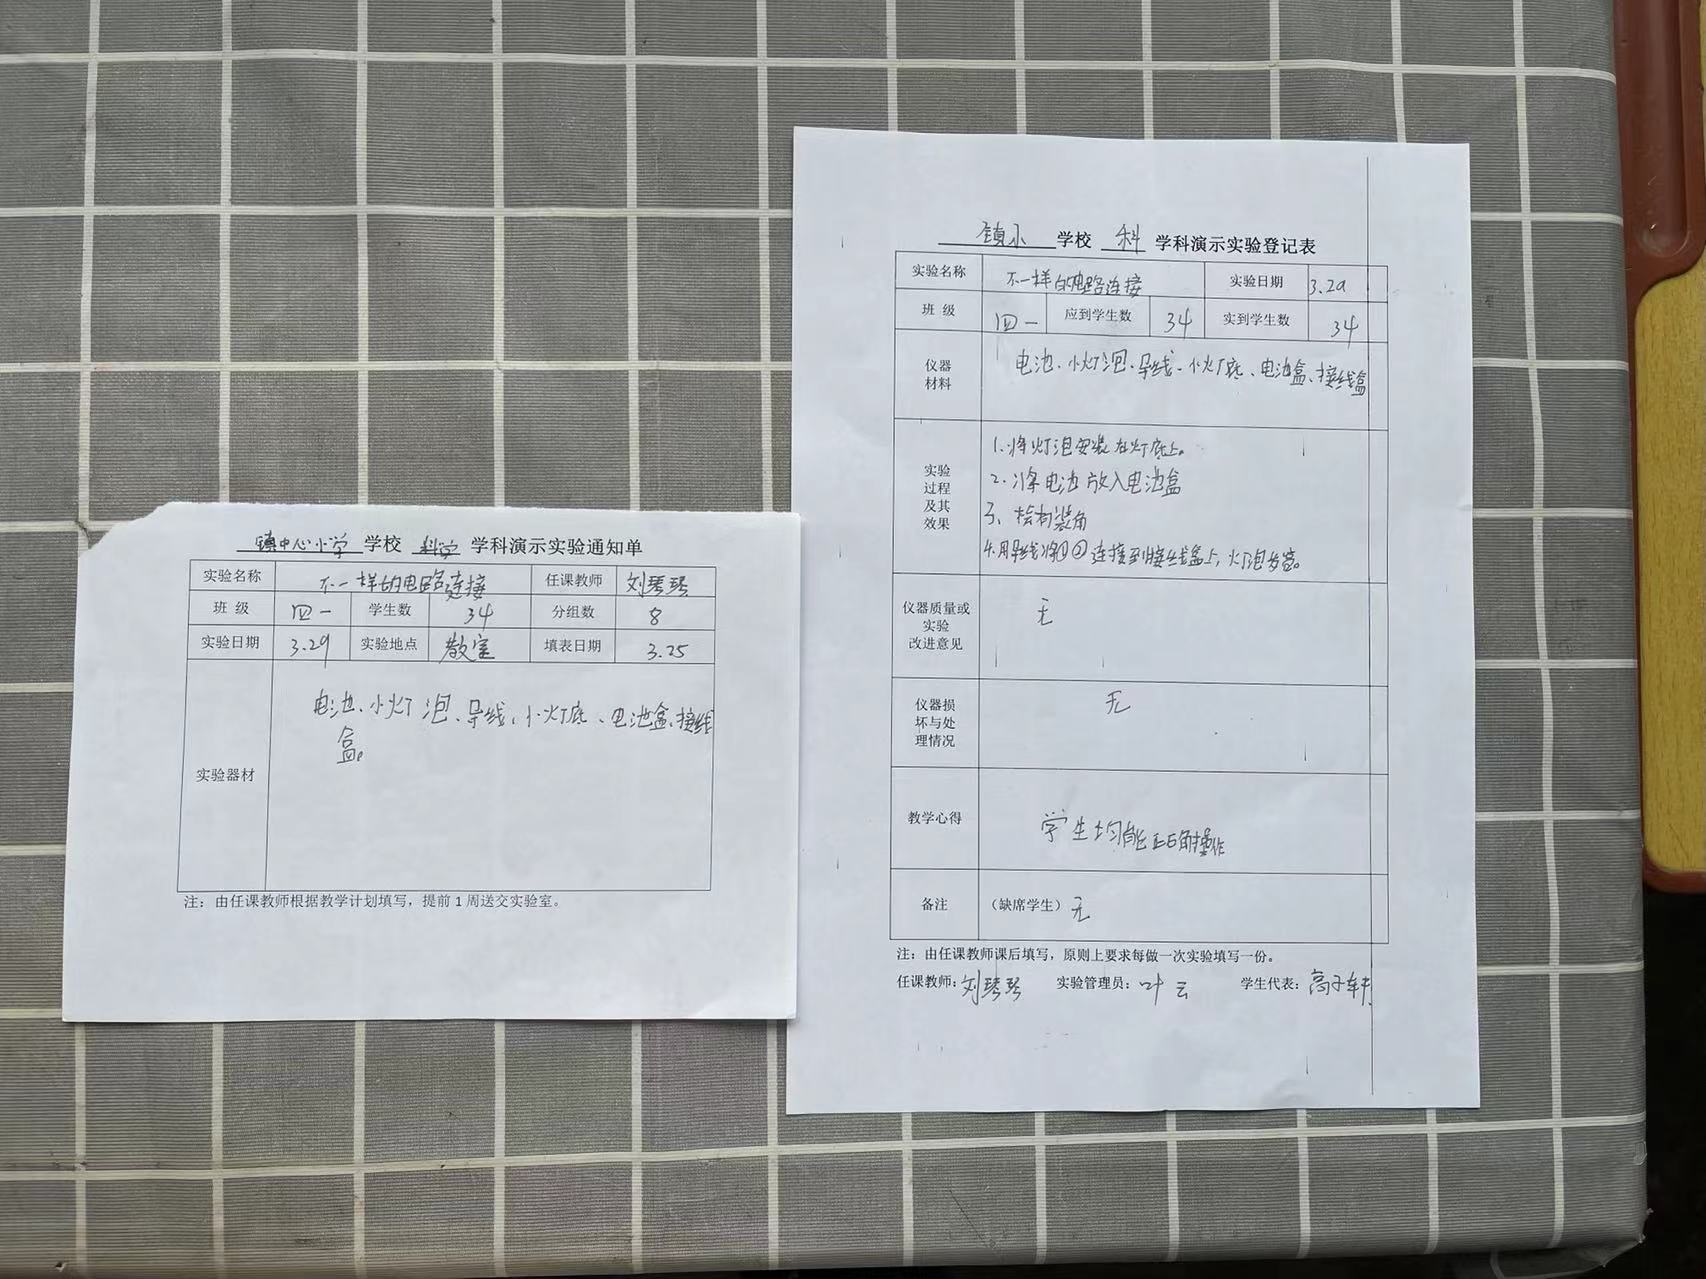 镇中心小学 学校 科学 学科演示实验通知单
实验名称 不一样的电路连接 任课教师 刘琴琴
班 级 四一 学生数 34 分组数 8
实验日期 3.29 实验地点 教室 填表日期 3.25
实验器材 电池、小灯泡、导线、小灯底、电池盒、接线
盒。
注：由任课教师根据教学计划填写，提前1周送交实验室。
镇小 学校 科 学科演示实验登记表
实验名称 不一样的电路连接 实验日期 3.29
班 级 四一 应到学生数 34 实到学生数 34
仪器
材料
电池、小灯泡、导线、小灯底、电池盒、接线盒
实验
过程
及其
效果
1.将灯泡安装在灯底上。
2.将电池放入电池盒
3、
4.用导线将①②连接到接线盒上，灯泡发亮。
仪器质量或
实验
改进意见
无
仪器损
坏与处
理情况
无
教学心得 学生均能正确操作
备注 （缺席学生）无
注：由任课教师课后填写，原则上要求每做一次实验填写一份。
任课教师：刘琴琴 实验管理员：叶云 学生代表：高子轩